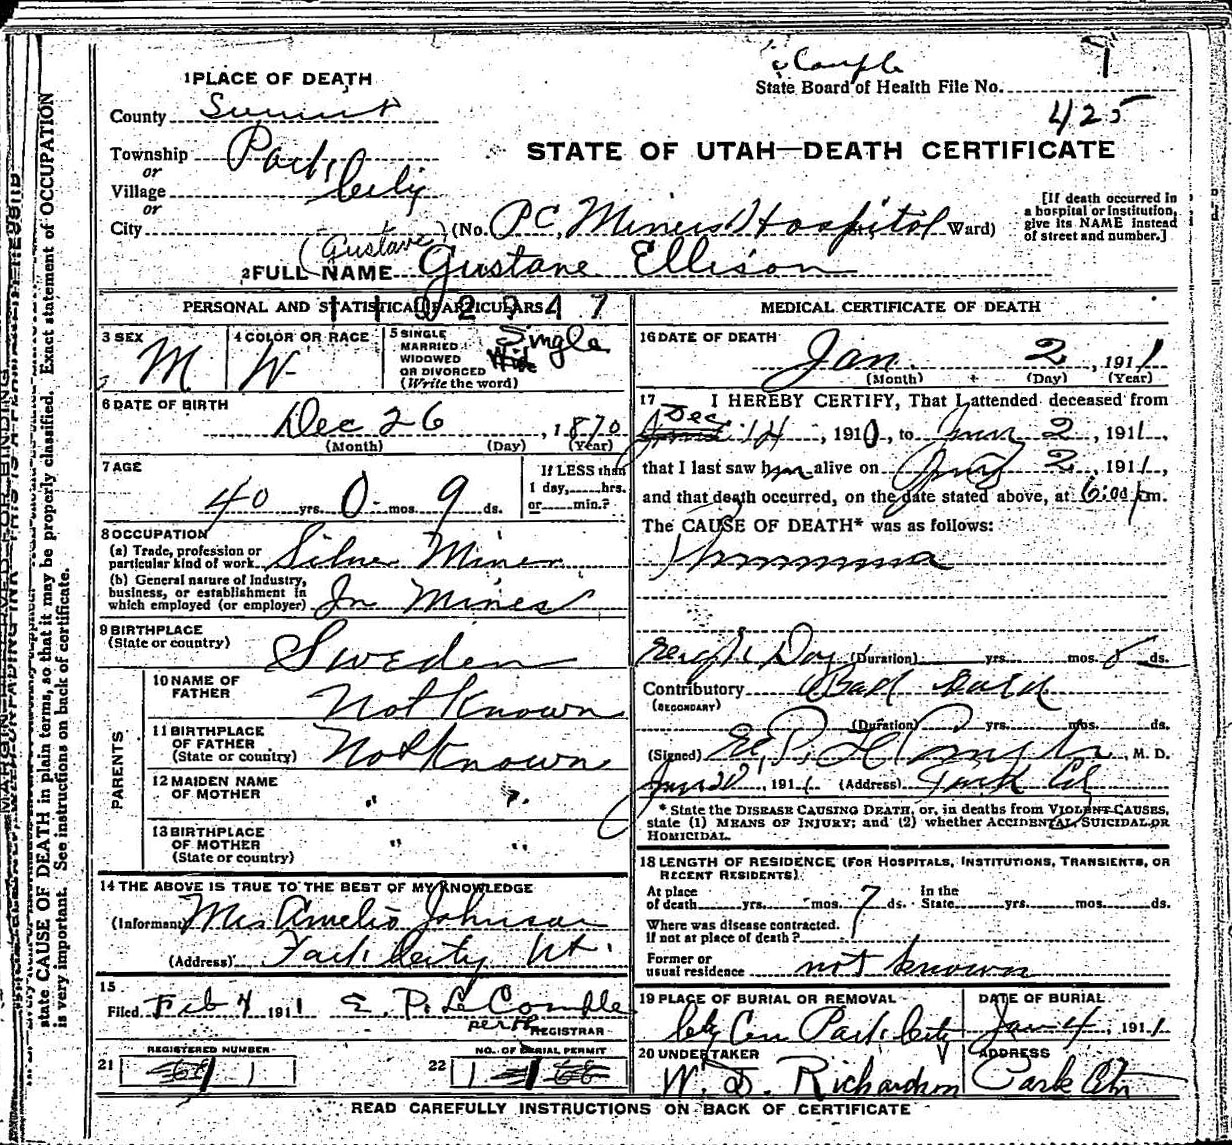 1 PLACE OF DEATH
County Summit
Township Park
or
Village City
or
City (No. P.C. Miners Hospital Ward)
State Board of Health File No. 7
425
STATE OF UTAH—DEATH CERTIFICATE
[If death occurred in
a hospital or institution,
give its NAME instead
of street and number.]
(Gustave)
2 FULL NAME Gustane Ellison
PERSONAL AND STATISTICAL PARTICULARS
3 SEX M
4 COLOR OR RACE W
5 SINGLE
MARRIED
WIDOWED
OR DIVORCED
(Write the word)
Single
6 DATE OF BIRTH
Dec 26, 1870
(Month) (Day) (Year)
7 AGE
40 yrs. 0 mos. 9 ds.
If LESS than
1 day, hrs.
or min.?
8 OCCUPATION
(a) Trade, profession or
particular kind of work Silver Miner
(b) General nature of Industry,
business, or establishment in
which employed (or employer) In Mines
9 BIRTHPLACE
(State or country) Sweden
PARENTS
10 NAME OF
FATHER Not Known
11 BIRTHPLACE
OF FATHER
(State or country) Not Known
12 MAIDEN NAME
OF MOTHER " "
13 BIRTHPLACE
OF MOTHER
(State or country) " "
14 THE ABOVE IS TRUE TO THE BEST OF MY KNOWLEDGE
(Informant) Mrs Amelio Johnson
(Address) Park City Ut.
15
Filed Feb 4 1911 E. P. Le Compte
REGISTRAR
REGISTERED NUMBER
21 1
NO. OF BURIAL PERMIT
22 1
MEDICAL CERTIFICATE OF DEATH
16 DATE OF DEATH
Jan. 2, 1911
(Month) (Day) (Year)
17 I HEREBY CERTIFY, That I attended deceased from
Dec 14, 1910, to Jany 2, 1911,
that I last saw him alive on Jany 2, 1911,
and that death occurred, on the date stated above, at 6:00 pm.
The CAUSE OF DEATH* was as follows:
Pneumonia
Eight Day (Duration) yrs. mos. 8 ds.
Contributory Bad Cold
(SECONDARY)
(Duration) yrs. mos. ds.
(Signed) E. P. Le Compte, M. D.
191 (Address) Park City
* State the DISEASE CAUSING DEATH, or, in deaths from VIOLENT CAUSES,
state (1) MEANS OF INJURY; and (2) whether ACCIDENTAL, SUICIDAL OR
HOMICIDAL.
18 LENGTH OF RESIDENCE (FOR HOSPITALS, INSTITUTIONS, TRANSIENTS, OR
RECENT RESIDENTS)
At place
of death yrs. mos. 7 ds. In the
State yrs. mos. ds.
Where was disease contracted.
If not at place of death?
Former or
usual residence not known
19 PLACE OF BURIAL OR REMOVAL
City Cem Park City
DATE OF BURIAL
Jan 4, 1911
20 UNDERTAKER
W. D. Richardson
ADDRESS
Park City
READ CAREFULLY INSTRUCTIONS ON BACK OF CERTIFICATE
state CAUSE OF DEATH in plain terms, so that it may be properly classified. Exact statement of OCCUPATION
is very important. See instructions on back of certificate.